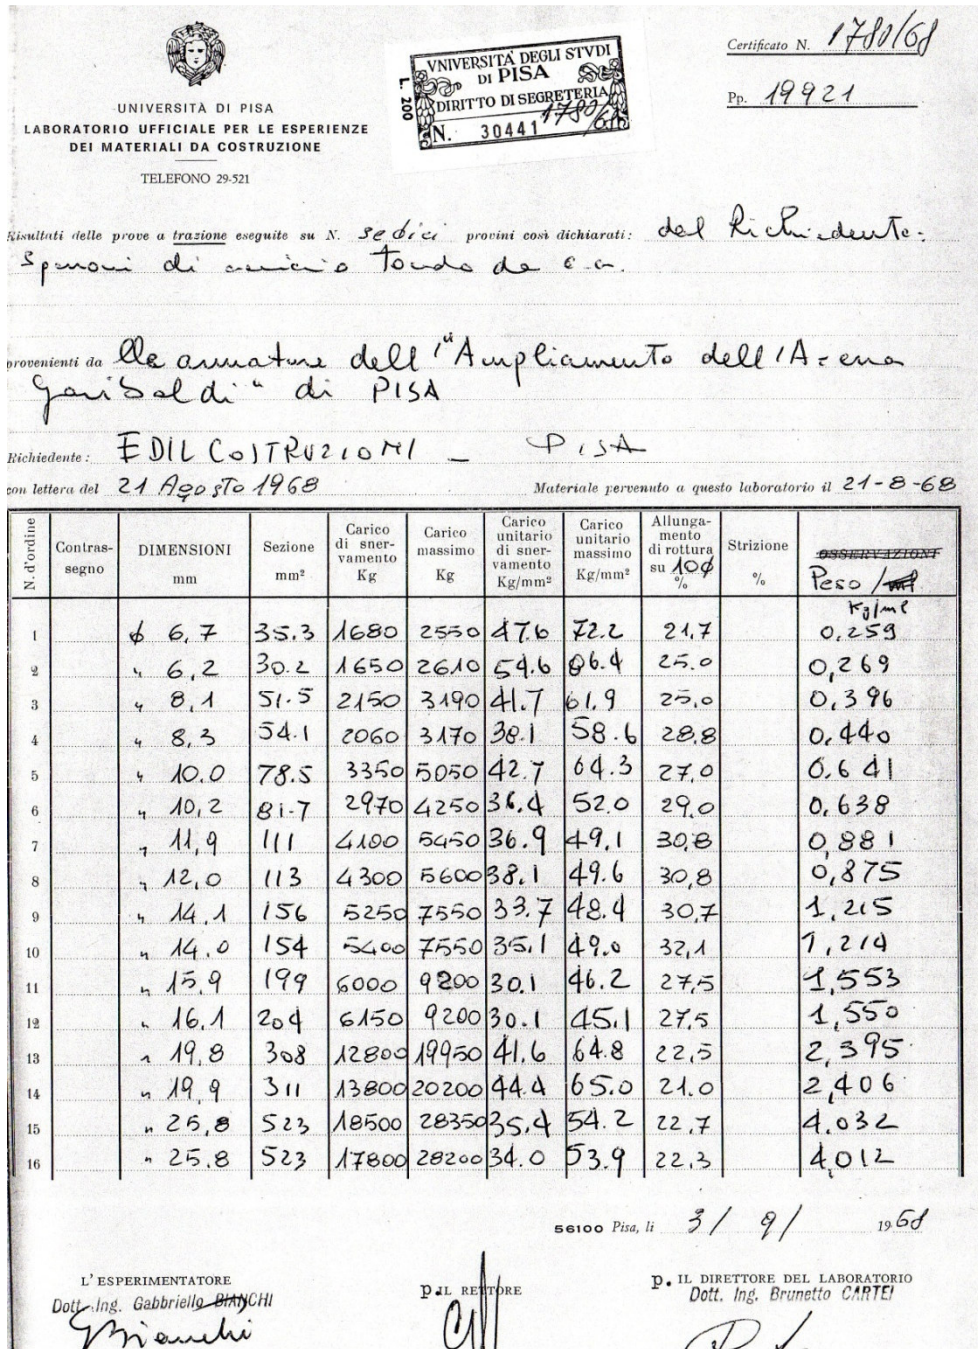 Certificato N. 1780/68
Pp. 19921
UNIVERSITÀ DEGLI STVDI
DI PISA
DIRITTO DI SEGRETERIA
N. 30441 1780/68
L. 200
UNIVERSITÀ DI PISA
LABORATORIO UFFICIALE PER LE ESPERIENZE
DEI MATERIALI DA COSTRUZIONE
TELEFONO 29-521
Risultati delle prove a trazione eseguite su N. sedici provini così dichiarati: dal Richiedente:
Spezzoni di acciaio tondo da c.a.
provenienti da lle armature dell'"Ampliamento dell'Arena
Garibaldi" di PISA
Richiedente: EDILCOSTRUZIONI - PISA
con lettera del 21 Agosto 1968 Materiale pervenuto a questo laboratorio il 21-8-68
N. d'ordine Contrassegno DIMENSIONI mm Sezione mm² Carico di snervamento Kg Carico massimo Kg Carico unitario di snervamento Kg/mm² Carico unitario massimo Kg/mm² Allungamento di rottura su 10ϕ % Strizione % OSSERVAZIONI Peso /ml Kg/ml
1 ϕ 6,7 35.3 1680 2550 47.6 72.2 21,7 0,259
2 " 6,2 30.2 1650 2610 54.6 86.4 25.0 0,269
3 " 8,1 51.5 2150 3190 41.7 61.9 25,0 0,396
4 " 8,3 54.1 2060 3170 38.1 58.6 28,8 0,440
5 " 10.0 78.5 3350 5050 42.7 64.3 27,0 0,641
6 " 10,2 81.7 2970 4250 36.4 52.0 29,0 0,638
7 " 11,9 111 4100 5450 36.9 49.1 30,8 0,881
8 " 12,0 113 4300 5600 38.1 49.6 30,8 0,875
9 " 14,1 156 5250 7550 33.7 48.4 30,7 1,215
10 " 14,0 154 5400 7550 35.1 49.0 32,1 1,214
11 " 15,9 199 6000 9200 30.1 46.2 27,5 1,553
12 " 16,1 204 6150 9200 30.1 45.1 27,5 1,550
13 " 19,8 308 12800 19950 41.6 64.8 22,5 2,395
14 " 19,9 311 13800 20200 44.4 65.0 21.0 2,406
15 " 25,8 523 18500 28350 35.4 54.2 22,7 4,032
16 " 25,8 523 17800 28200 34.0 53.9 22,3 4,012
56100 Pisa, li 3/ 9/ 1968
L'ESPERIMENTATORE
Dott. Ing. Gabbriello BIANCHI
GBianchi
p. IL RETTORE
p. IL DIRETTORE DEL LABORATORIO
Dott. Ing. Brunetto CARTEI